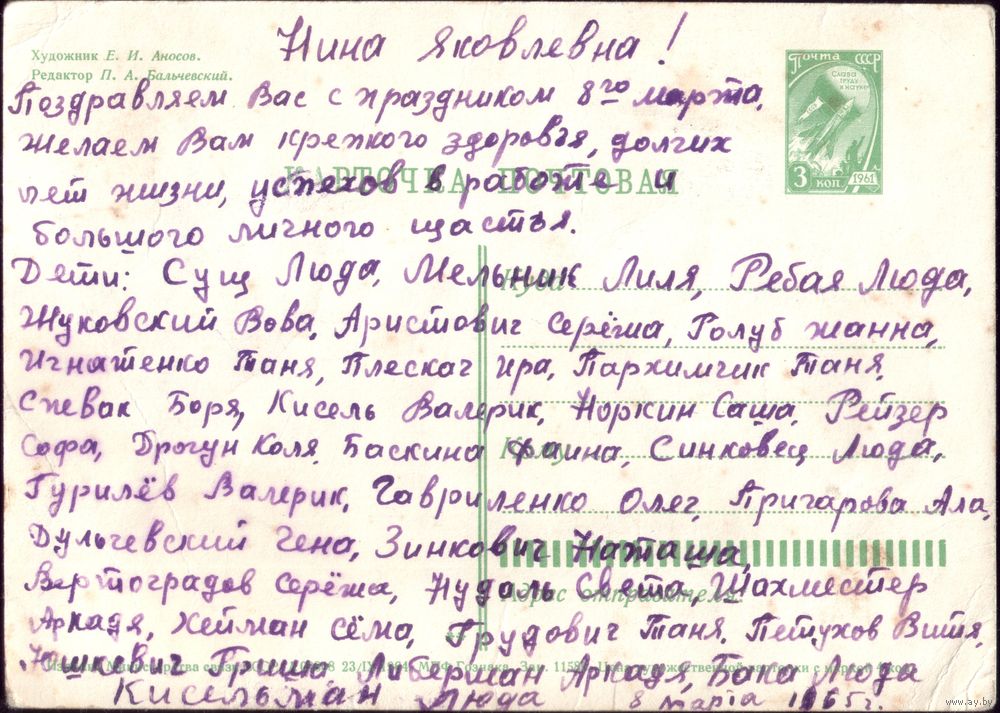 Нина Яковлевна!
Художник Е. И. Аносов.
Редактор П. А. Бальчевский.
Почта СССР
Слава труду и науке
3 коп 1961
Поздравляем Вас с праздником 8го марта,
желаем Вам крепкого здоровья, долгих
КАРТОЧКА ПОЧТОВАЯ
лет жизни, успехов в работе и
большого личного щастья.
Дети: Сущ Люда, Мельник Лиля, Ребая Люда,
Куда
Жуковский Вова, Аристович Серёжа, Голуб Жанна,
Игнатенко Таня, Плескач Ира, Пархимчик Таня,
Спевак Боря, Кисель Валерик, Норкин Саша, Рейзер
Софа, Дрогун Коля, Баскина Фаина, Синковец Люда,
Кому
Гурилёв Валерик, Гавриленко Олег, Пригарова Ала,
Дульчевский Гена, Зинкович Наташа,
Вертоградов Серёжа, Нудаль Света, Шахместер
Адрес отправителя:
Аркадя, Хейман Сёма, Грудович Таня, Петухов Витя,
Юшкевич Гриша, Либерман Аркадя, Бака Люда
Издание Министерства связи СССР 23/IX 1964. МПФ Гознака. Зак. Цена художественной карточки с маркой 4 коп.
Кисельман Люда 8 марта 1965г.
www.ay.by